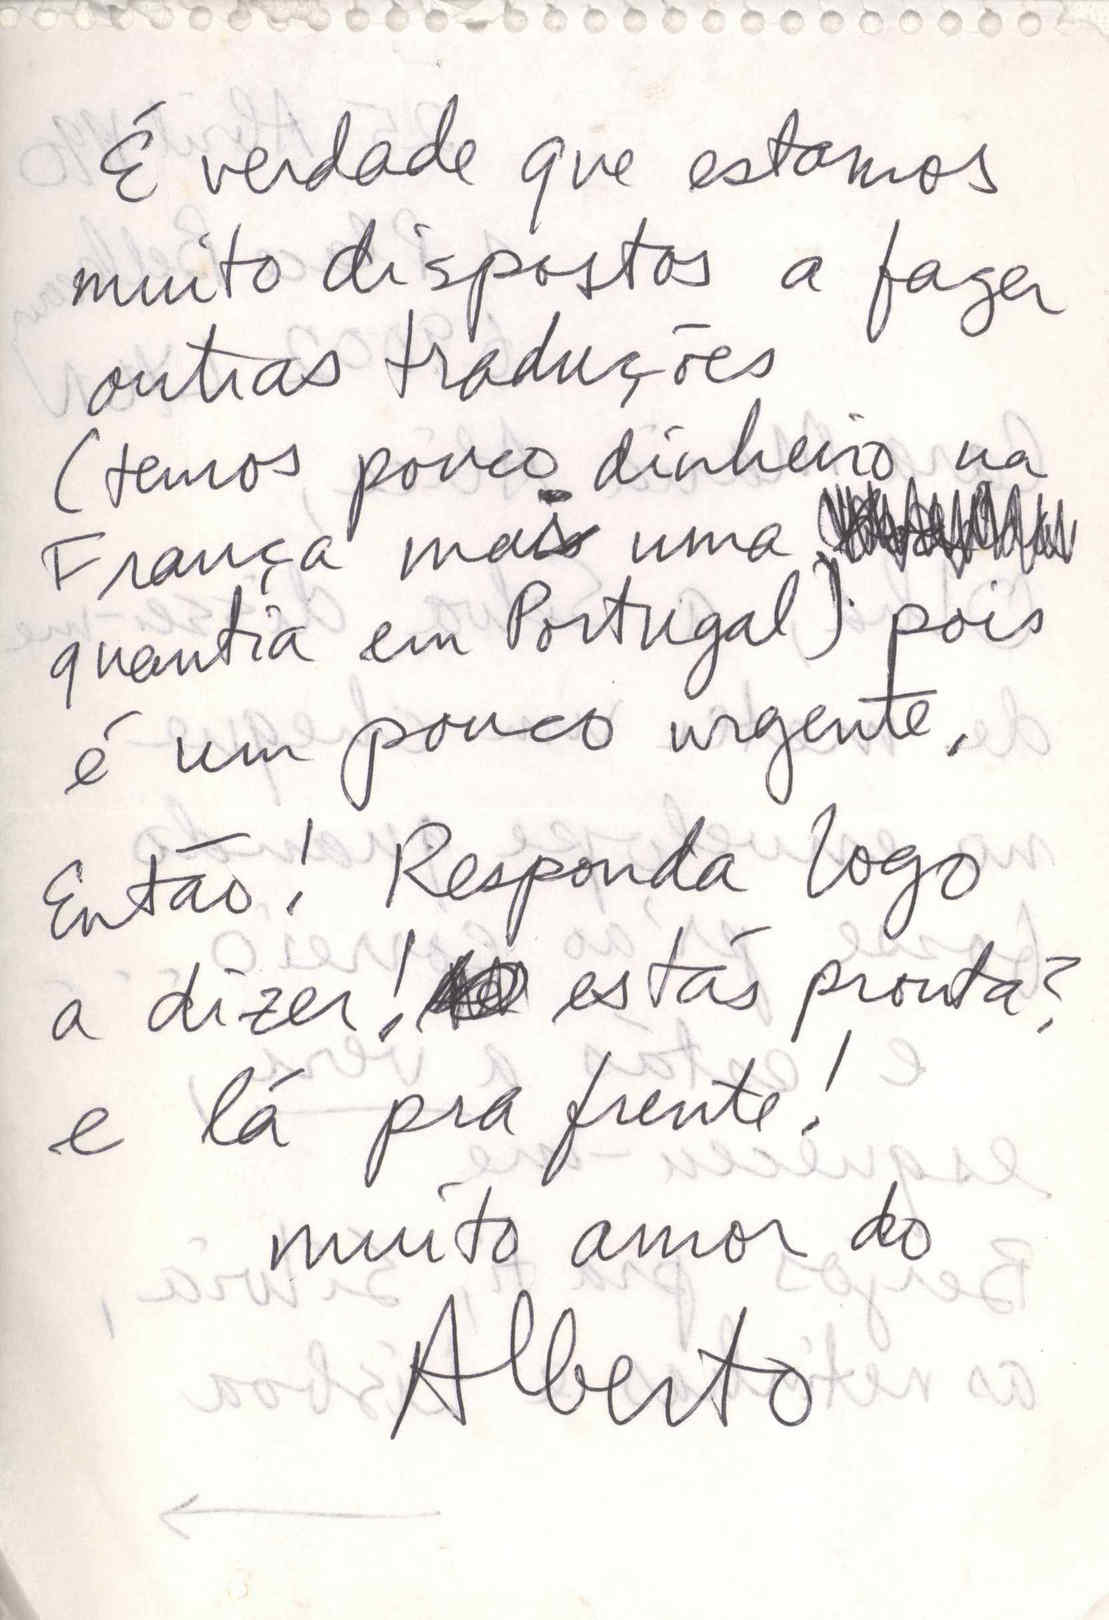 É verdade que estamos
muito dispostos a fazer
outras traduções
(temos pouco dinheiro na
França mais uma
quantia em Portugal) pois
é um pouco urgente.
Então! Responda logo
a dizer! estás pronta?
e lá pra frente!
muito amor do
Alberto